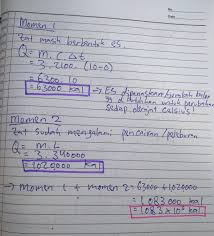 No.
Date
Momen 1
Zat masih berbentuk es.
Q = m.c.Δt
= 3.2100.(10-0)
= 6300.10
= 63000 kal → ES dipanaskan/jumlah kalor
yg dibutuhkan untuk perubahan
setiap derajat celsius!
Momen 2
Zat sudah mengalami pencairan/peleburan
Q = m.L
= 3.340000
= 1020000 kal
→ Momen 1 + momen 2 = 63000 + 1020000
= 1.083.000 kal
= 1.083 x 10⁶ kal